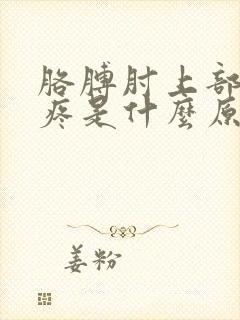 胳膊肘上部
疼是什麼原
姜粉